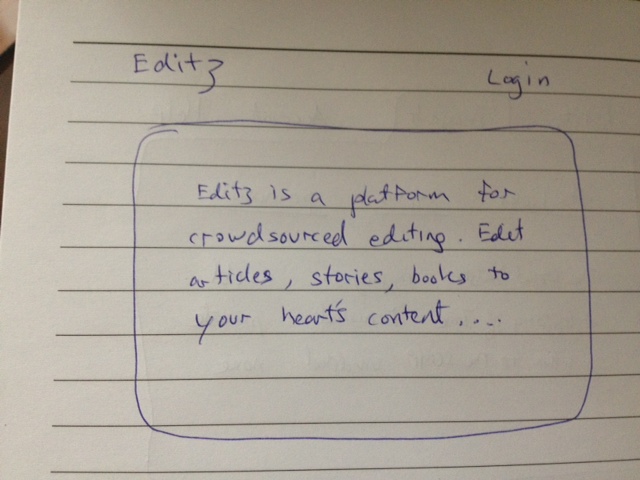 Editz
Login
Editz is a platform for
crowdsourced editing. Edit
articles, stories, books to
your heart's content....